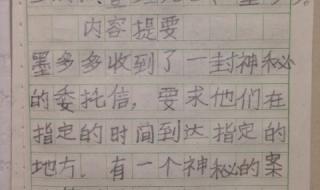 内容提要
墨多多收到了一封神秘
的委托信，要求他们在
指定的时间到达指定的
地方．有一个神秘的案